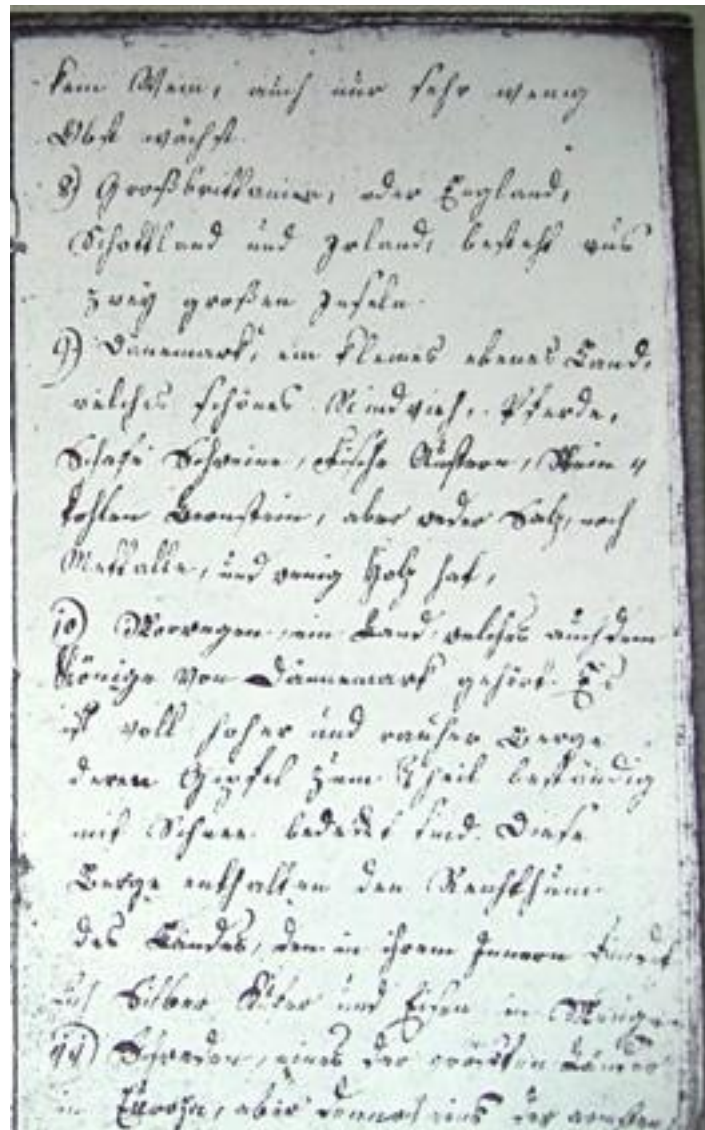 kein Wein, auch nur sehr wenig
Obst wächst.
8) Großbrittanien, oder England,
Schottland und Irland, besteht aus
zwey großen Inseln.
9) Dänemark, ein kleines ebenes Land,
welches schönes Rindvieh, Pferde,
Schafe Schweine, Fische Austern, Stein
kohlen Bernstein, aber weder Salz, noch
Mettalle, und wenig Holz hat,
10) Norwegen, ein Land, welches auch dem
Könige von Dännemark gehört. Es
ist voll hoher und rauher Berge
deren Gipfel zum Theil beständig
mit Schnee bedeckt sind. Diese
Berge enthalten den Reichthum
des Landes, den in ihrem Innern findet
sich Silber Kupfer und Eisen in Menge.
11) Schweden, eines der größten Länder
in Europa, aber dennoch eins der